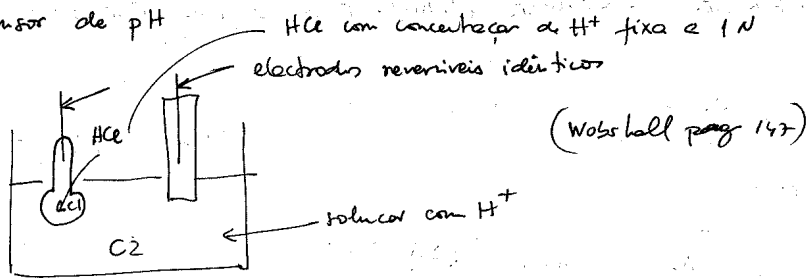 nsor de pH
HCl com concentração de H⁺ fixa a 1 N
electrodos reversíveis idênticos
HCl
(Wobshall pag 147)
HCl
solucar com H⁺
C2